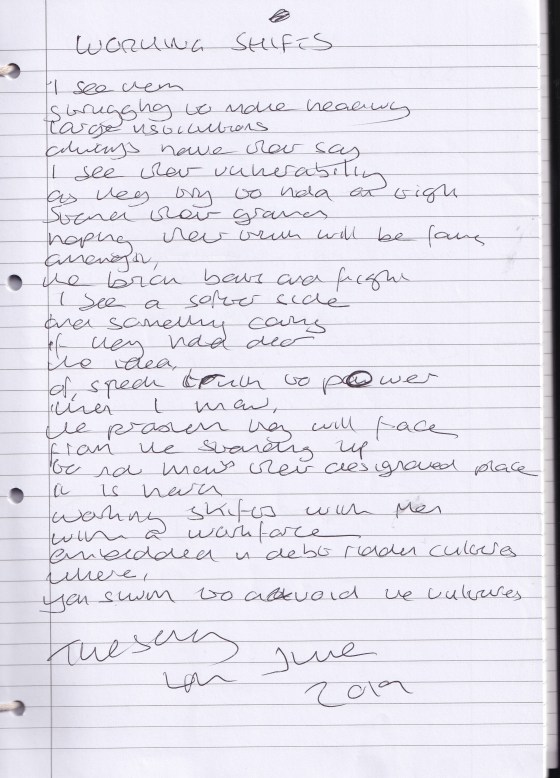 WORKING SHIFTS
I see them
struggling to make headway
large institutions
always have their say
I see their vulnerability
as they try to hold on tight
Stand their ground
hoping their truth will be found
amongst,
the brick bats and fight
I see a softer side
and something caring
if they hold dear
the idea,
of, speak truth to power
when I know,
the problem they will face
from the standing up
to not know their designated place
it is hard
working shifts with men
with a workforce
embedded in debt ridden cultures
where,
you swim to avoid the vultures
Tuesday
4th June
2019